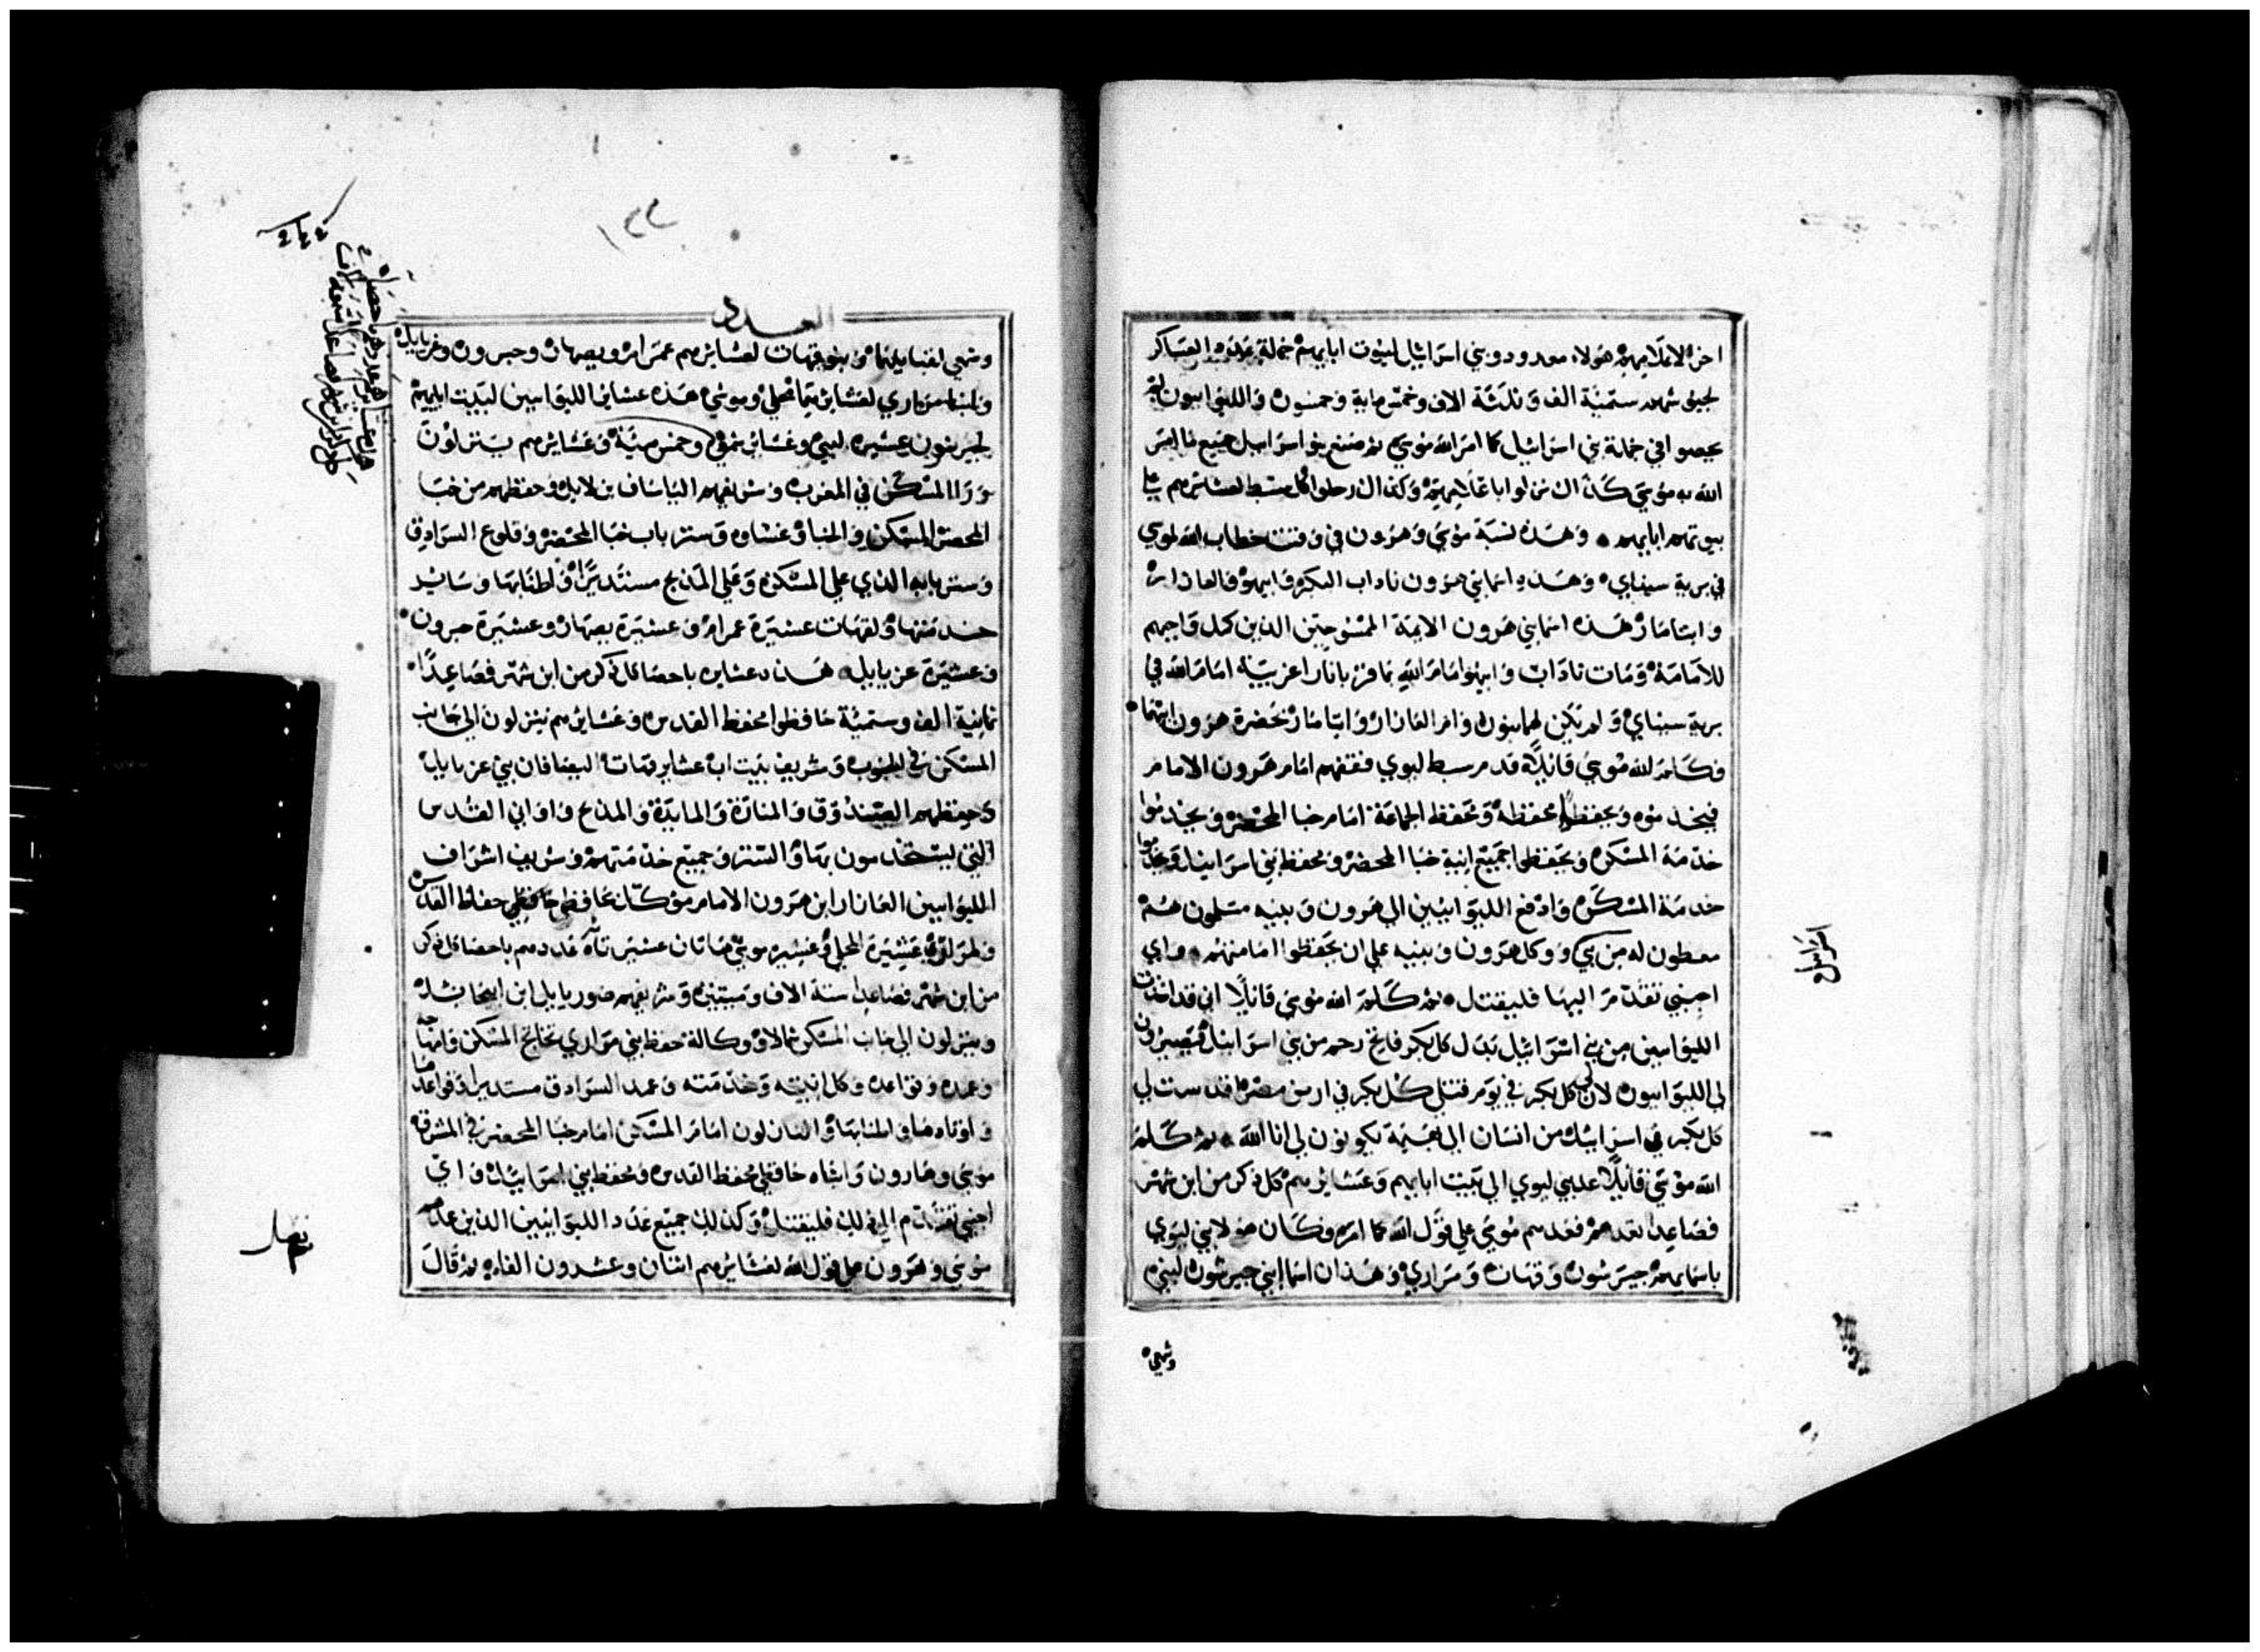 اخرًا لاعلامهم هولاء معدودو بني اسرائيل لبيوت ابايهم جملة عدده العساكر
لجيوشهم ستمية الف وثلثة الاف وخمس ماية وخمسون والليوانيون لم
يحصوا في جملة بني اسرائيل كما امر الله موسي ثم صنع بنو اسرائيل جميع ما امر
الله به موسي كان نزلوا باعلامهم وكذا رحلوا كل سبط لعشايرهم علي
بيوتهم ابايهم وهذه نسبة موسي وهرون في وقت خطاب الله لموسي
في برية سيناي وهذه اسما بني هرون ناداب البكر وابيهو والعازار
وايتامار هذه اسما بني هرون الايمة الممسوحين الذين كمل واجبهم
للامامة ومات ناداب وابيهو امام الله بما قربا نارا غريبة امام الله في
برية سيناي ولم يكن لهما بنون وام العازار وايتامار بحضرة هرون ابيهما
فكلم الله موسي قائلا قدم سبط ليوي فقفهم امام هرون الامام
فيخدموه ويحفظوا محفظه ومحفظ الجماعة امام خبا المحضر ويخدموا
خدمة المسكن ويحفظوا جميع انية خبا المحضر ومحفظ بني اسرائيل ويخدموا
خدمة المسكن وادفع الليوانيين الي هرون وبنيه مسلمون هم
معطون له من بني ووكل هرون وبنيه علي ان يحفظوا امامتهم واي
اجنبي تقدم اليها فليقتل ثم كلم الله موسي قائلا اني قد اخذت
الليوانيين من بني اسرائيل بدل كل بكر فاتح رحم من بني اسرائيل فيصيرون
لي الليوانيون لان لي كل بكر في يوم قتل كل بكر في ارض مصر قدست لي
كل بكر في اسرائيل من انسان الي بهيمة يكونون لي انا الله ثم كلم
الله موسي قائلا عد بني ليوي الي بيت ابايهم وعشايرهم كل ذكر من ابن شهر
فصاعدا تعدهم فعدهم موسي علي قول الله كما امره وكان هولا بني ليوي
باسمايهم جيرشون وقهات ومراري وهذان اسما ابني جيرشون لبني
وشمعي
اسرائيل
العدد
وشمعي لقبايلهما وبنو قهات لعشايرهم عمرام ويصهار وحبرون وعزيايل
وابنا مراري لعشايرهما محلي وموشي هذه عشاير الليوانيين لبيت ابايهم
لجيرشون عشيرة لبني وعشاير شمعي وخمس مية وعشايرهم ينزلون
ورا المسكن في المغرب وشريفهم الياساف بن لايل وحفظهم من خبا
المحضر المسكن والخبا وغشاوه وستر باب خبا المحضر وقلوع السرادق
وستر بابه الذي علي المسكن وعلي المذبح مستديرا واطنابها وساير
خدمتها ولقهات عشيرة عمرام وعشيرة يصهار وعشيرة حبرون
وعشيرة عزيايل هذه عشايره باحصا كل ذكر من ابن شهر فصاعدا
ثمانية الف وستمية حافظوا محفظ القدس وعشايرهم ينزلون الي جانب
المسكن في الجنوب وشريف بيت اب عشاير قهات اليصافان بن عزيايل
وحفظهم الصندوق والمنارة والمايدة والمذبح واواني القدس
التي يستخدمون بها والستر وجميع خدمتهم وشريف اشراف
الليوانيين العازار ابن هرون الامام موكلا علي حافظي حفاظ القدس
ولمراري عشيرة المحلي وعشيرة موشي هاتان عشيرتاه عددهم باحصا كل ذكر
من ابن شهر فصاعدا ستة الاف وميتين وشريفهم صوريايل ابن ابيحايل
وينزلون الي جانب المسكن شمالا ووكالة حفظ بني مراري تخاتج المسكن وامتاحه
وعمده وقواعده وكل انيته وخدمته وعمد السرادق مستديرا وقواعدها
واوتادها واطنابها والنازلون امام المسكن امام خبا المحضر في المشرق
موسي وهارون وابناه حافظي محفظ القدس ومحفظ بني اسرائيل واي
اجنبي تقدم الي ذلك فليقتل وكذلك جميع عدد الليوانيين الذين عدهم
موسي وهرون علي قول الله لعشايرهم اثنان وعشرون الفا ثم قال